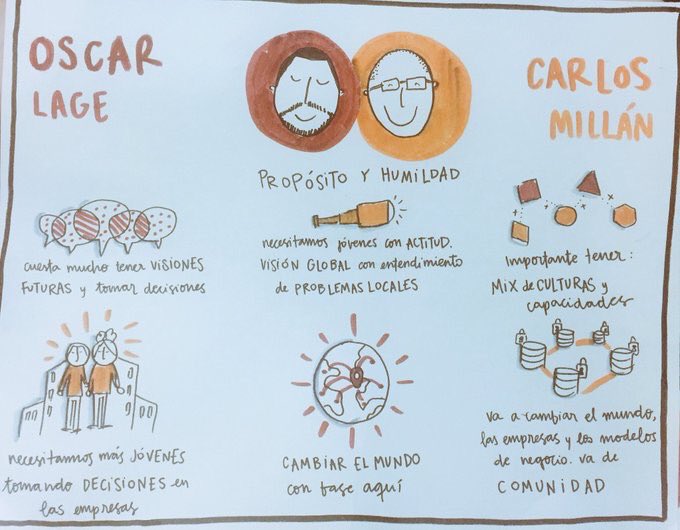 OSCAR
LAGE
CARLOS
MILLÁN
PROPÓSITO Y HUMILDAD
cuenta mucho tener VISIONES
FUTURAS y tomar decisiones
necesitamos jóvenes con ACTITUD.
VISIÓN GLOBAL con entendimiento
de PROBLEMAS LOCALES
Importante tener:
MIX de CULTURAS y
capacidades
necesitamos más JÓVENES
tomando DECISIONES en
las empresas
CAMBIAR EL MUNDO
con base aquí
va a cambiar el mundo,
las empresas y los modelos
de negocio. va de
COMUNIDAD